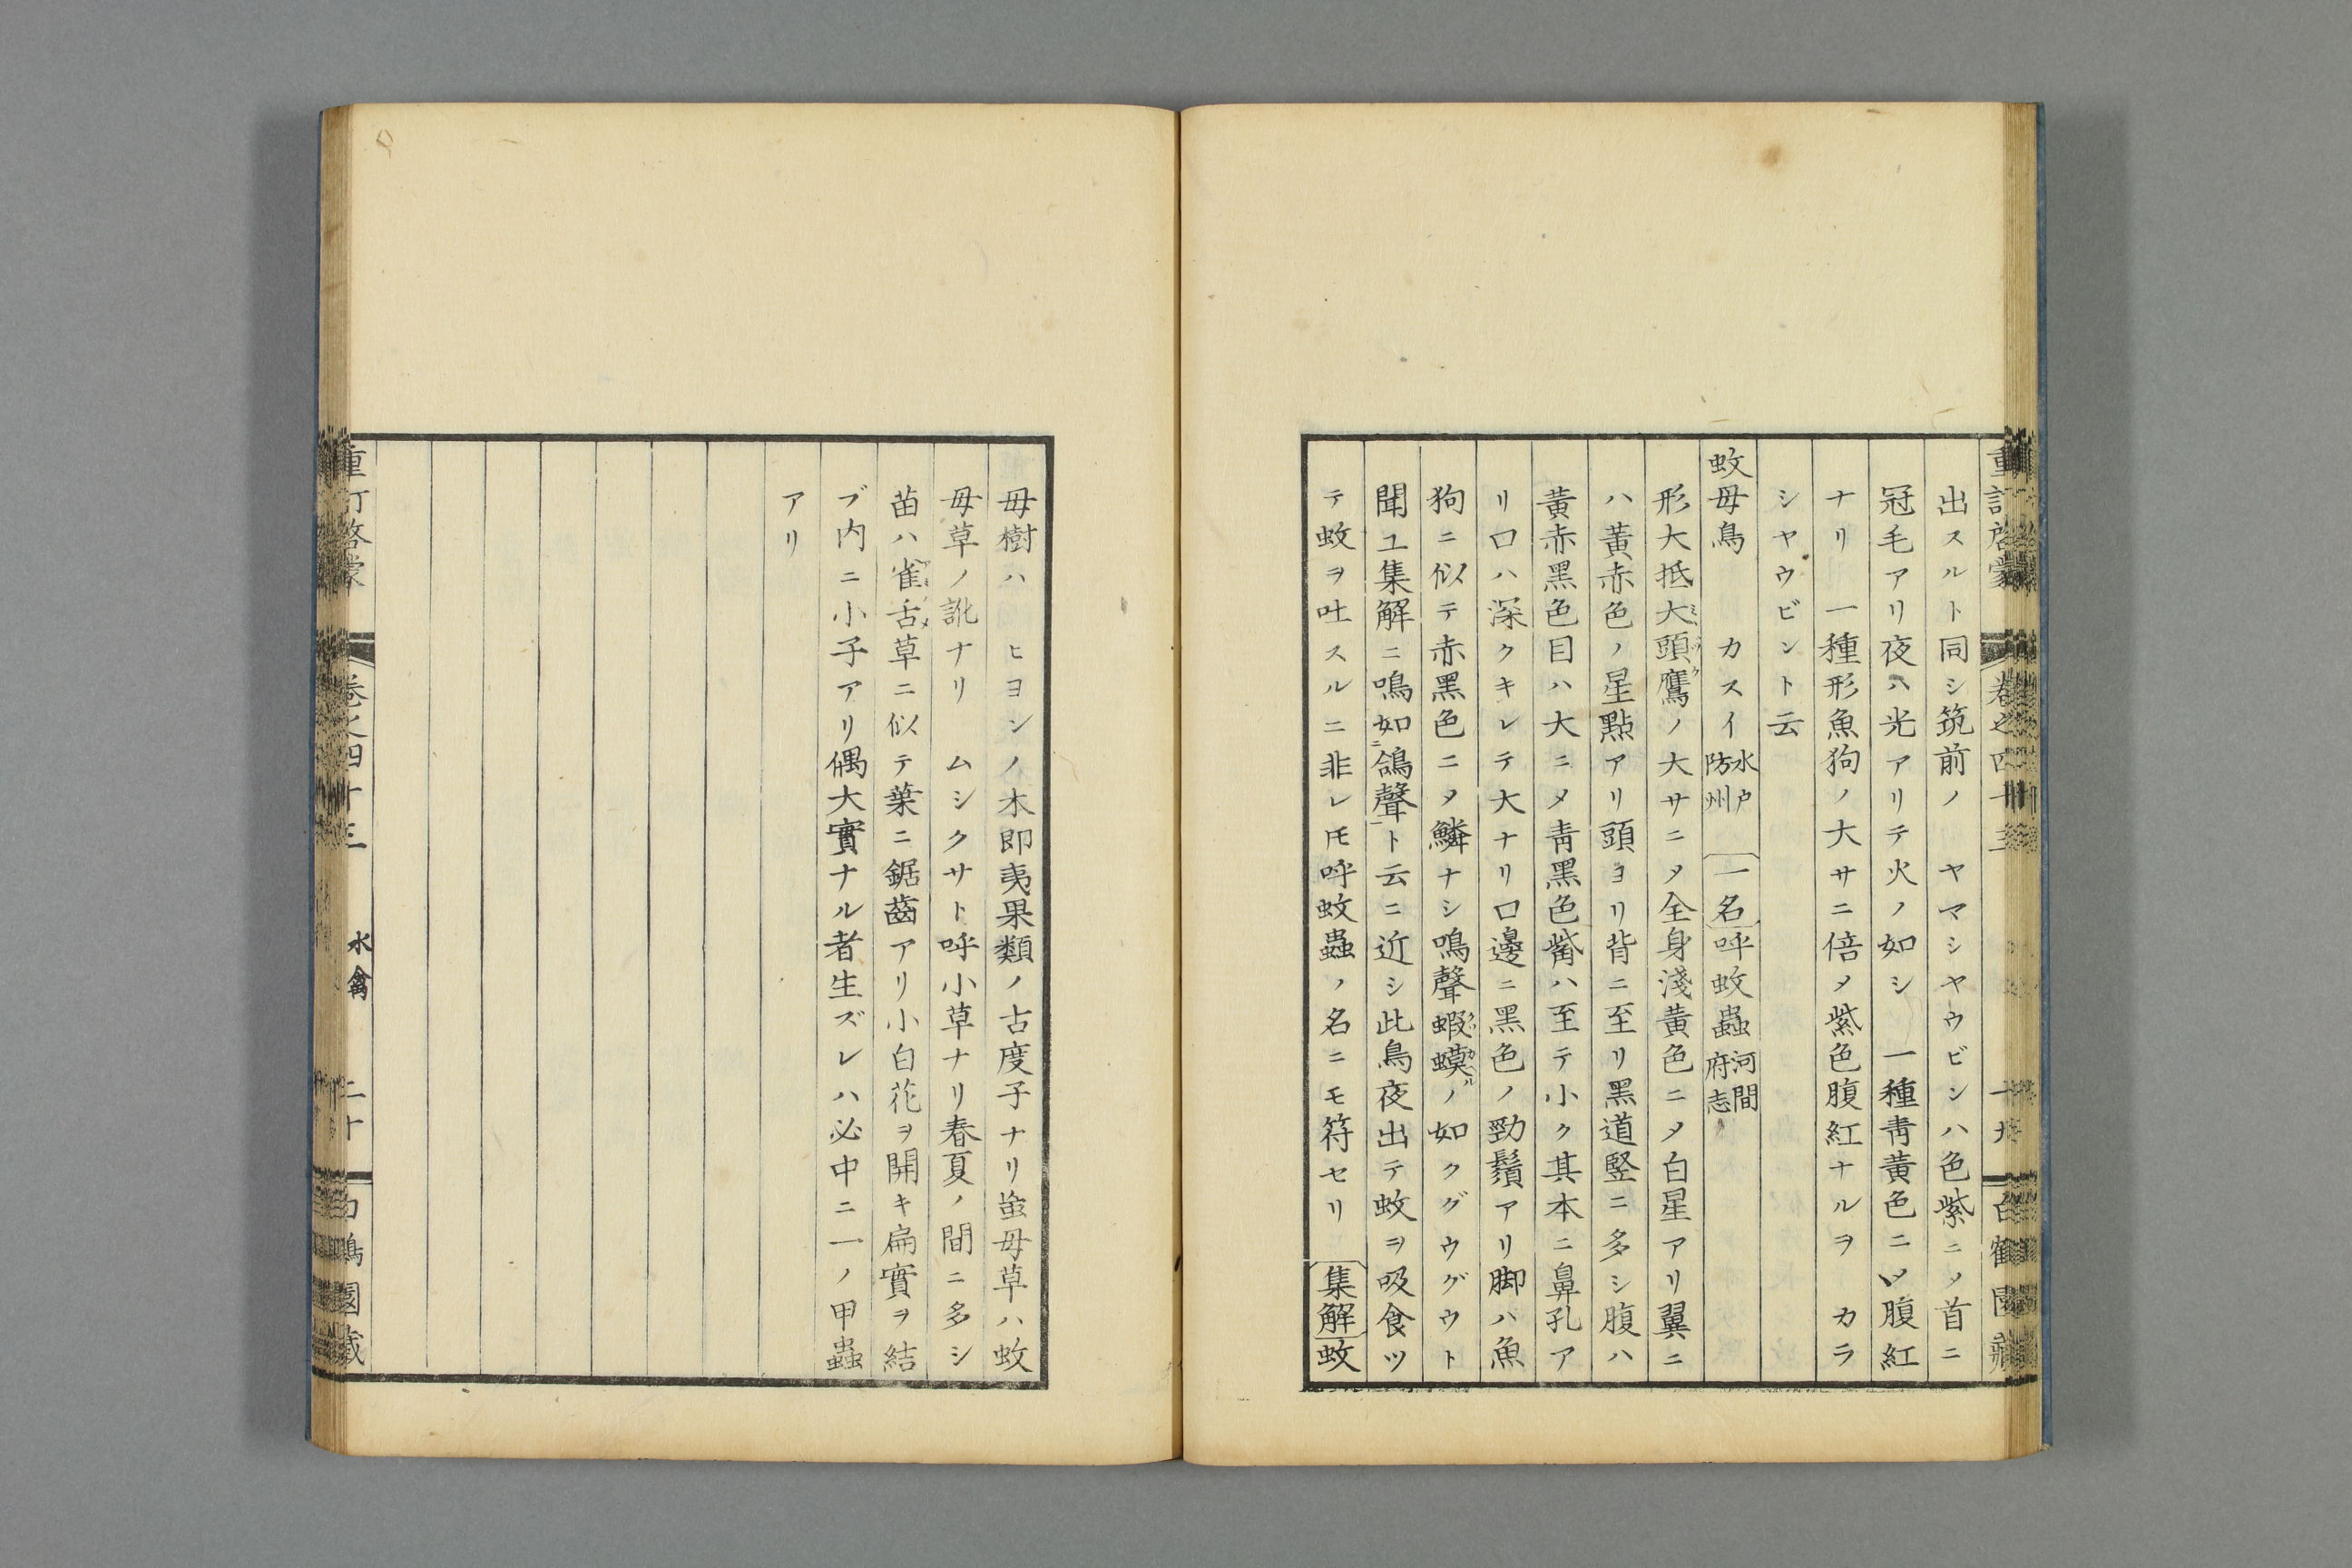 出スルト同シ筑前ノ　ヤマシヤウビンハ色紫ニ〆首ニ
冠毛アリ夜ハ光アリテ火ノ如シ　一種青黄色ニ〆腹紅
ナリ　一種形魚狗ノ大サニ倍〆紫色腹紅ナルヲ　カラ
シヤウビント云
蚊母鳥　カスイ水戸防州　一名呼蚊蟲河間府志
形大抵大頭鷹ミヽヅクノ大サニ〆全身淺黄色ニ〆白星アリ翼ニ
ハ黄赤色ノ星點アリ頭ヨリ背ニ至リ黒道竪ニ多シ腹ハ
黄赤黒色目ハ大ニ〆青黒色觜ハ至テ小ク其本ニ鼻孔ア
リ口ハ深クキレテ大ナリ口邊ニ黒色ノ勁鬚アリ脚ハ魚
狗ニ似テ赤黒色ニ〆鱗ナシ鳴聲蝦蟆ノ如クグウグウト
聞ユ集解ニ鳴如ニ鴿聲一ト云ニ近シ此鳥夜出テ蚊ヲ吸食ツ
テ蚊ヲ吐スルニ非レ𪜈呼蚊蟲ノ名ニモ符セリ　集解蚊
重訂啓蒙　卷之四十三　十九
母樹ハ　ヒヨンノ木即夷果類ノ古度子ナリ蝱母草ハ蚊
母草ノ訛ナリ　ムシクサト呼小草ナリ春夏ノ間ニ多シ
苗ハ雀舌草ニ似テ葉ニ鋸齒アリ小白花ヲ開キ扁實ヲ結
ブ内ニ小子アリ偶大實ナル者生ズレハ必中ニ一ノ甲蟲
アリ
重訂啓蒙　卷之四十三　水禽　二十